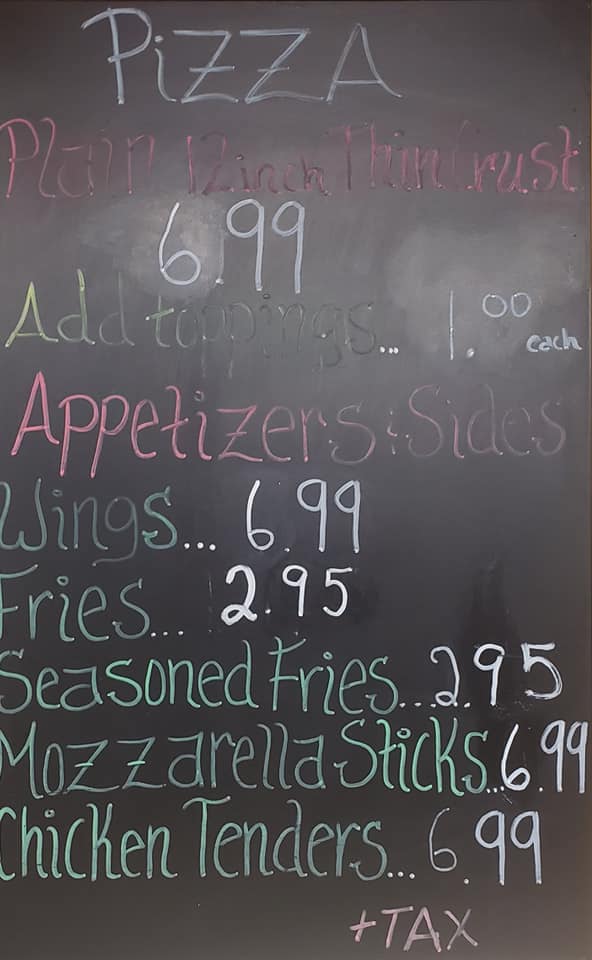 PiZZA
Plain 12 inch Thin Crust
6.99
Add toppings... 1.00 each
Appetizers & Sides
Wings... 6.99
Fries... 2.95
Seasoned Fries... 2.95
Mozzarella Sticks... 6.99
Chicken Tenders... 6.99
+TAX